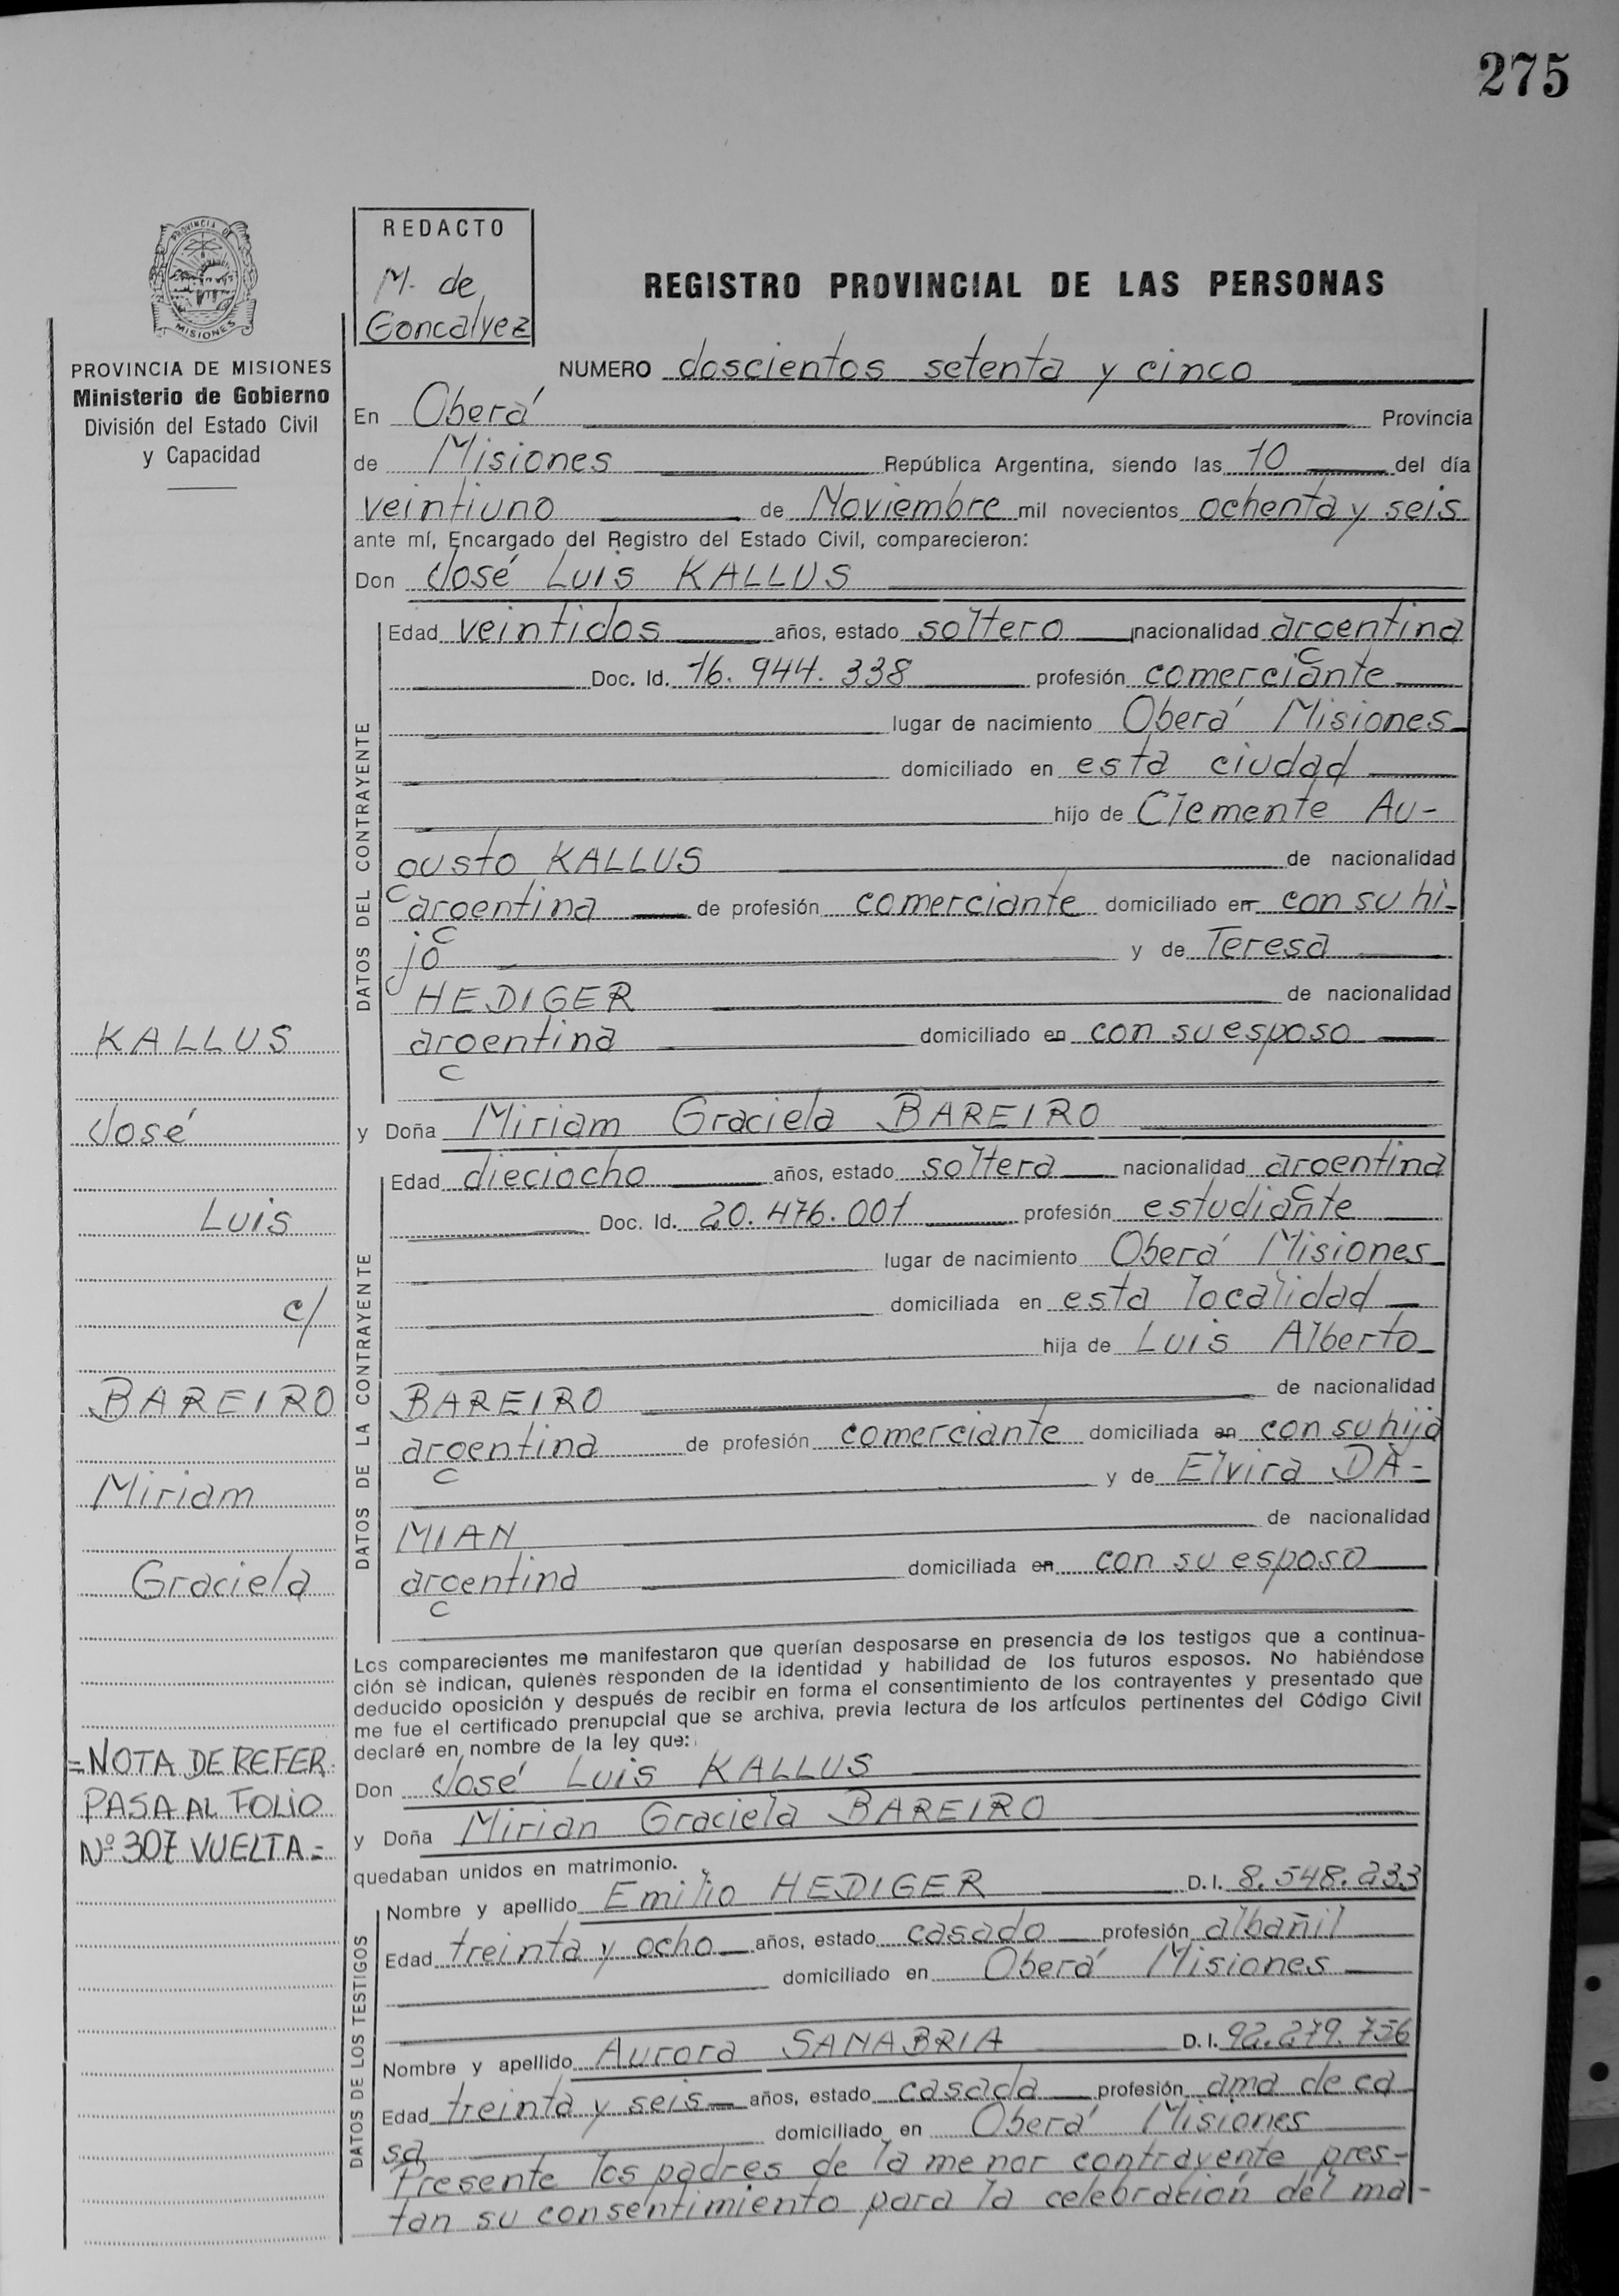 275
PROVINCIA DE
MISIONES
PROVINCIA DE MISIONES
Ministerio de Gobierno
División del Estado Civil
y Capacidad
KALLUS
José
Luis
c/
BAREIRO
Miriam
Graciela
=NOTA DE REFER.
PASA AL FOLIO
Nº 307 VUELTA=
REDACTO
M. de
Goncalvez
REGISTRO PROVINCIAL DE LAS PERSONAS
NUMERO doscientos setenta y cinco
En Oberá Provincia
de Misiones República Argentina, siendo las 10 del día
veintiuno de Noviembre mil novecientos ochenta y seis
ante mí, Encargado del Registro del Estado Civil, comparecieron:
Don José Luis KALLUS
DATOS DEL CONTRAYENTE
Edad veintidos años, estado soltero nacionalidad argentina
Doc. Id. 16.944.338 profesión comerciante
lugar de nacimiento Oberá Misiones
domiciliado en esta ciudad
hijo de Clemente Au-
gusto KALLUS de nacionalidad
argentina de profesión comerciante domiciliado en con su hi-
jo y de Teresa
HEDIGER de nacionalidad
argentina domiciliado en con su esposo
y Doña Miriam Graciela BAREIRO
DATOS DE LA CONTRAYENTE
Edad dieciocho años, estado soltera nacionalidad argentina
Doc. Id. 20.476.001 profesión estudiante
lugar de nacimiento Oberá Misiones
domiciliada en esta localidad
hija de Luis Alberto
BAREIRO de nacionalidad
argentina de profesión comerciante domiciliada en con su hija
y de Elvira DA-
MIAN de nacionalidad
argentina domiciliada en con su esposo
Los comparecientes me manifestaron que querían desposarse en presencia de los testigos que a continua-
ción se indican, quienes responden de la identidad y habilidad de los futuros esposos. No habiéndose
deducido oposición y después de recibir en forma el consentimiento de los contrayentes y presentado que
me fue el certificado prenupcial que se archiva, previa lectura de los artículos pertinentes del Código Civil
declaré en nombre de la ley que:
Don José Luis KALLUS
y Doña Mirian Graciela BAREIRO
quedaban unidos en matrimonio.
DATOS DE LOS TESTIGOS
Nombre y apellido Emilio HEDIGER D.I. 8.548.233
Edad treinta y ocho años, estado casado profesión albañil
domiciliado en Oberá Misiones
Nombre y apellido Aurora SANABRIA D.I. 92.279.756
Edad treinta y seis años, estado casada profesión ama de ca
sa domiciliado en Oberá Misiones
Presente los padres de la menor contrayente pres-
tan su consentimiento para la celebración del mal-